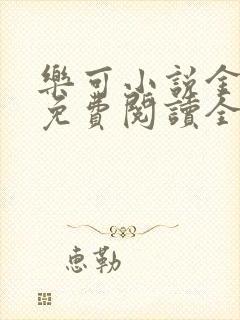 樂可小說全
免費閱讀全
惠勒